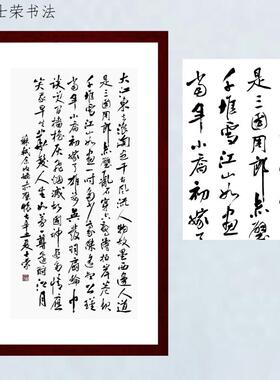 士荣书法
大江东去浪淘尽千古风流人物故垒西边人道
是三國周郎赤壁乱石穿空惊涛拍岸卷起
千堆雪江山如画一时多少豪杰遥想公瑾
当年小乔初嫁了雄姿英发羽扇纶巾
谈笑间樯橹灰飞烟灭故国神游多情应
笑我早生华发人生如梦一尊还酹江月
是三國周郎赤壁
千堆雪江山如画
当年小乔初嫁了